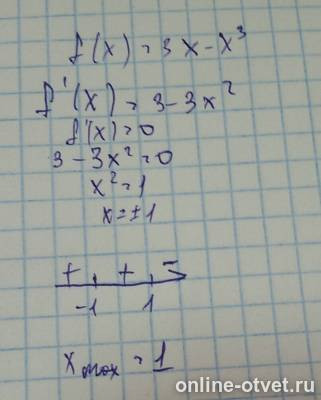 f(x) = 3x - x³
f'(x) = 3 - 3x²
f'(x) = 0
3 - 3x² = 0
x² = 1
x = ±1
+ + -
-1 1
x max = 1
online-otvet.ru